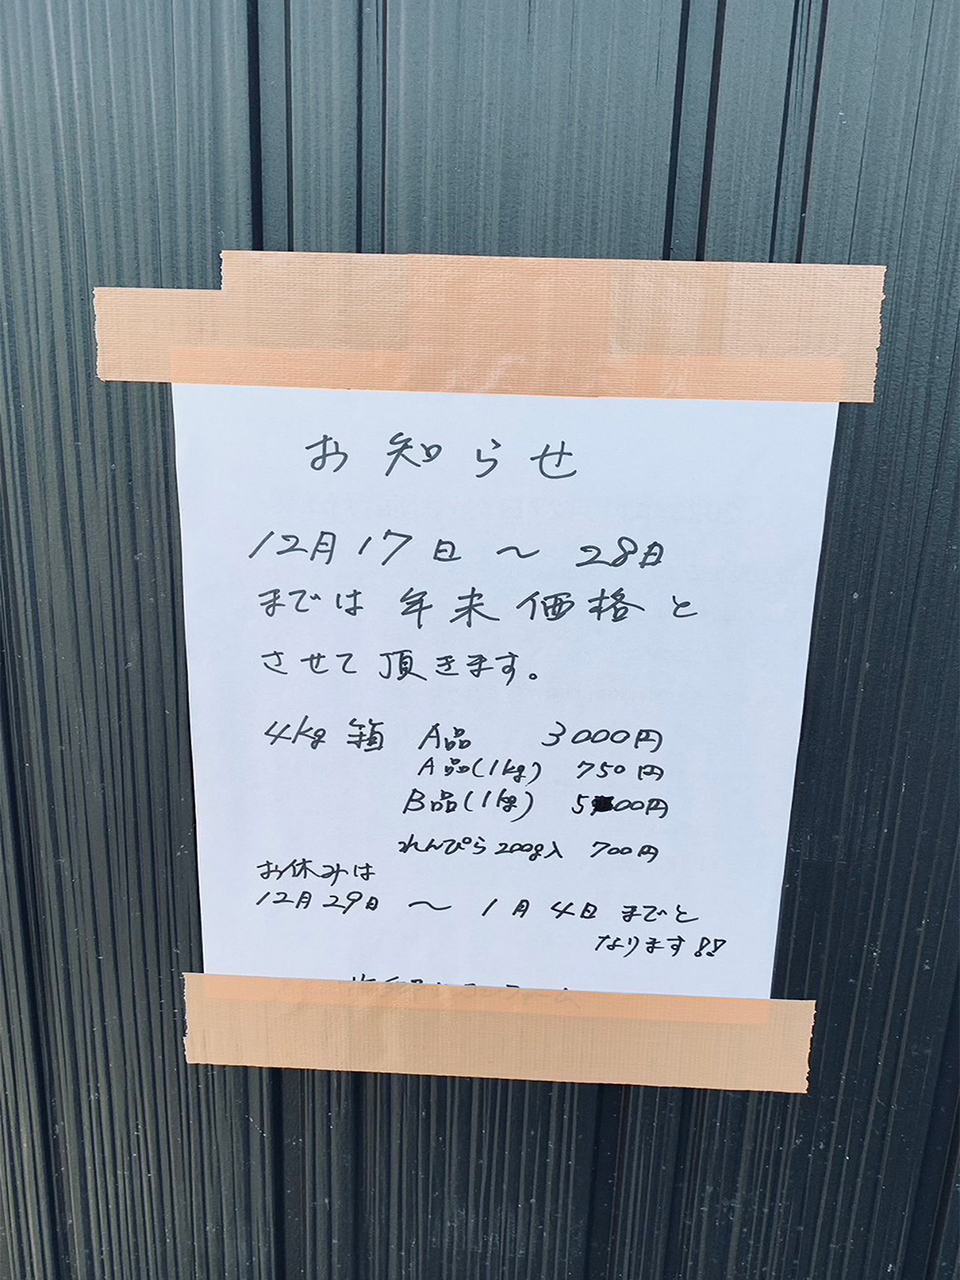 お知らせ
12月17日 〜 28日
までは 年末価格と
させて頂きます。
4kg 箱 A品 3000円
A品(1kg) 750円
B品(1kg) 500円
れんぴら200g入 700円
お休みは
12月29日 〜 1月4日 までと
なります!!